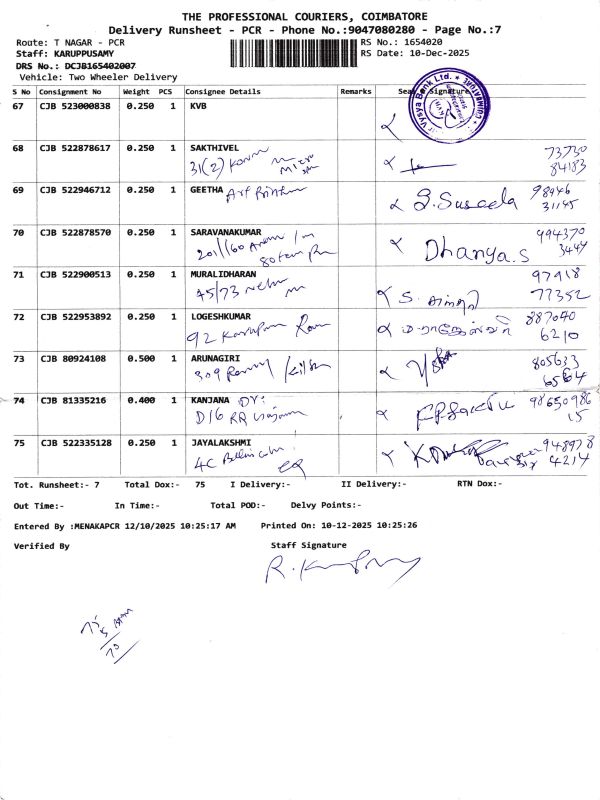 THE PROFESSIONAL COURIERS, COIMBATORE
Delivery Runsheet - PCR - Phone No.:9047080280 - Page No.:7
Route: T NAGAR - PCR RS No.: 1654020
Staff: KARUPPUSAMY RS Date: 10-Dec-2025
DRS No.: DCJB165402007
Vehicle: Two Wheeler Delivery
S No Consignment No Weight PCS Consignee Details Remarks Seal & Signature
67 CJB 523000838 0.250 1 KVB
Vysya Bank Ltd.
COIMBATORE
68 CJB 522878617 0.250 1 SAKTHIVEL 73730
31(2) 84183
69 CJB 522946712 0.250 1 GEETHA S. Suseela 98946
31145
70 CJB 522878570 0.250 1 SARAVANAKUMAR Dhanya.S 994370
201/160 3444
71 CJB 522900513 0.250 1 MURALIDHARAN 97918
45/73 Nehru S. 77352
72 CJB 522953892 0.250 1 LOGESHKUMAR 887040
92 6210
73 CJB 80924108 0.500 1 ARUNAGIRI 805633
309 6564
74 CJB 81335216 0.400 1 KANJANA DV: 98650986
D16 RR 15
75 CJB 522335128 0.250 1 JAYALAKSHMI 948978
4C 4214
Tot. Runsheet:- 7 Total Dox:- 75 I Delivery:- II Delivery:- RTN Dox:-
Out Time:- In Time:- Total POD:- Delvy Points:-
Entered By :MENAKAPCR 12/10/2025 10:25:17 AM Printed On: 10-12-2025 10:25:26
Verified By Staff Signature
70